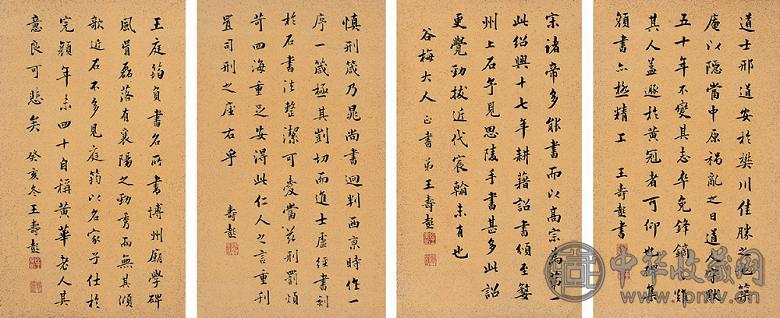 道士邢道安於樊川佳勝之地築
庵以隱當中原禍亂之日道人守默
五十年不變其志卒免鋒鏑
其人蓋遯於黃冠者可仰也
額書亦極精工 王壽彭書
宋諸帝多能書而以高宗為第一
此紹興十七年耕藉詔書頒至婺
州上石予見思陵手書甚多此詔
更覺勁拔近代宸翰未有也
谷梅大人正書 弟王壽彭
慎刑箴乃晁尚書迥判西京時作一
序一箴極其剴切而進士盧經書刻
於石書法整潔可愛當茲刑罰煩
苛四海重足安得此仁人之言重刊
置司刑之座右乎
壽彭
王庭筠負書名所書博州廟學碑
風骨磊落有襄陽之勁秀而無其傾
欹近石不多見庭筠以名家子仕於
完顏年未四十自稱黃華老人其
意良可悲矣 癸亥冬王壽彭
中华收藏网
www.pmlv.cn